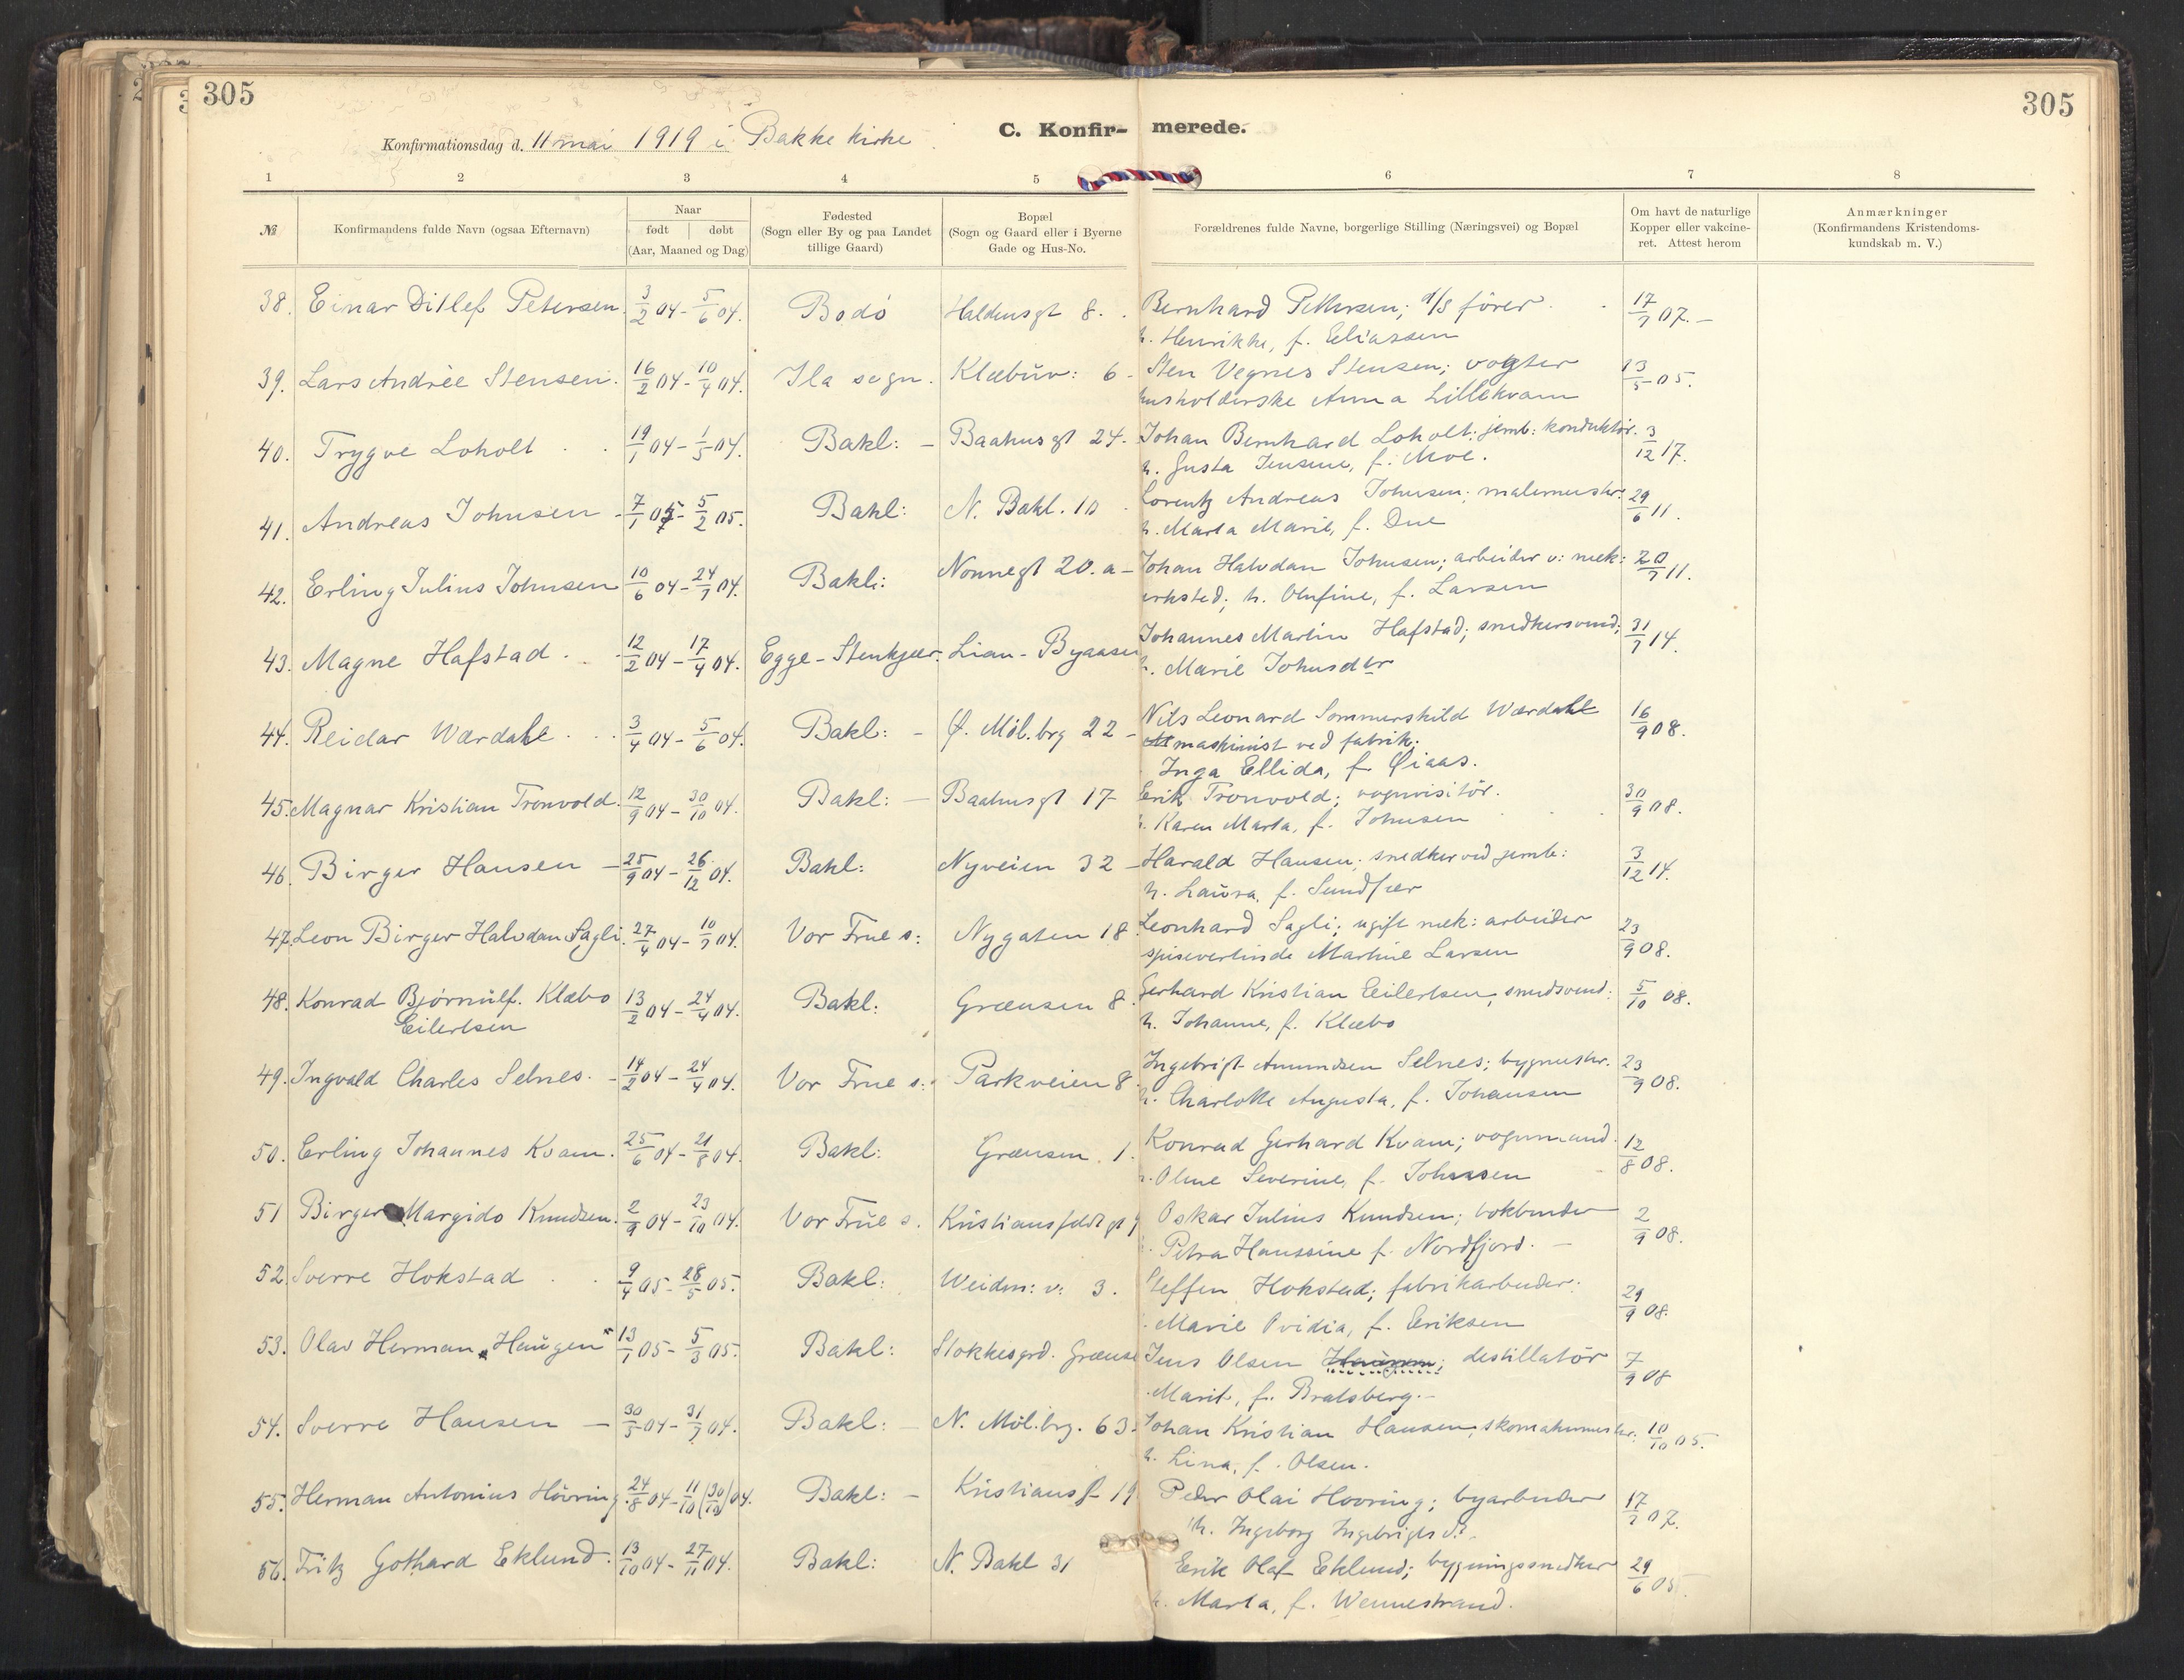 305
305
Konfirmationsdag d. 11 mai 1919 i Bakke kirke
C. Konfir- merede.
1 2 3 4 5 6 7 8
№
Konfirmandens fulde Navn (ogsaa Efternavn)
Naar
født døbt
(Aar, Maaned og Dag)
Fødested
(Sogn eller By og paa Landet
tillige Gaard)
Bopæl
(Sogn og Gaard eller i Byerne
Gade og Hus-No.
Forældrenes fulde Navne, borgerlige Stilling (Næringsvei) og Bopæl
Om havt de naturlige
Kopper eller vakcine-
ret. Attest herom
Anmærkninger
(Konfirmandens Kristendoms-
kundskab m. V.)
38. Einar Ditlef Petersen 3/2 04 - 5/6 04. Bodö Haldensgt 8. Bernhard Pettersen; förer 17/7 07.
h. Henrikke, f. Eeliassen
39. Lars Andrèe Stensen. 16/2 04 - 10/4 04. Ila sogn. Klæbuv: 6 Sten Vegnes Stensen; vogter 13/5 05.
husholderske Anna Lillekvam
40. Trygve Loholt 19/1 04 - 1/5 04. Bakl: - Baahusgt 24. Johan Bernhard Loholt; jernb: konduktör. 3/12 17.
h. Gusta Jensine, f. Moe.
41. Andreas Johnsen - 7/1 05 - 5/2 05. Bakl: N. Bakl. 10 Lorentz Andreas Johnsen; malermester. 29/6 11.
h. Marta Marie, f. Due
42. Erling Julius Johnsen 10/6 04 - 24/7 04. Bakl: Nonnegt 20.a - Johan Halvdan Johnsen; arbeider v: mek: 20/7 11.
verksted; h. Olufine, f. Larsen
43. Magne Hafstad 12/2 04 - 17/4 04. Egge - Stenkjær. Lian - Byaasen Johannes Martin Hafstad; snedkersvend; 31/7 14.
h. Marie Johnsdtr
44. Reidar Wærdahl 3/4 04 - 5/6 04. Bakl: - Ø. Möl.brg 22 - Nils Leonard Sommerskild Wærdahl 16/9 08.
maskinist ved fabrik;
Inga Ellida, f. Øiaas.
45. Magnar Kristian Tronvold. 12/9 04 - 30/10 04. Bakl: - Baahusgt 17 Erik Tronvold; vognvisitör. 30/9 08.
h. Karen Marta, f. Johnsen
46. Birger Hansen - 25/9 04 - 26/12 04. Bakl: Nyveien 32 - Harald Hansen; snedker ved jernb: 3/12 14.
h. Laura, f. Sundfær
47. Leon Birger Halvdan Sagli. 27/4 04 - 10/7 04. Vor Frue s: Nygaten 18 Leonhard Sagli; ugift mek: arbeider 23/9 08.
spisevertinde Martine Larsen
48. Konrad Bjørnulf. Klæbo 13/2 04 - 24/4 04. Bakl: Grænsen 8. Gerhard Kristian Eilertsen, snedsvend: 5/10 08.
Eilertsen h. Johanne, f. Klæbo
49. Ingvald Charles Selnes. - 14/2 04 - 24/4 04. Vor Frue s: Parkveien 8. Ingebrigt Amundsen Selnes; bygmester. 23/9 08.
h. Charlotte Augusta, f. Johansen
50. Erling Johannes Kvam. 25/6 04 - 21/8 04. Bakl: Grænsen. 1. Konrad Gerhard Kvam; vognmand. 12/8 08.
h. Oline Severine, f. Johnsen
51 Birger Margido Knudsen. 2/9 04 - 23/10 04. Vor Frue s. Kristiansfeldtgt 9 Oskar Julius Knudsen; bokbinder 2/9 08.
Petra Haussine f. Nordfjord. -
52. Sverre Hokstad 9/4 05 - 28/5 05. Bakl: Weidm: v: 3. Steffen Hokstad; fabrikarbeider. 29/9 08.
Marie Ovidia, f. Eeriksen
53. Olav Herman Haugen 13/1 05 - 5/3 05. Bakl: Stokkesgrd. Grænse Jens Olsen Haugen; destillatör 7/9 08
Marit, f. Bratsberg. -
54. Sverre Hansen - 30/5 04 - 31/7 04. Bakl: - N. Möl.brg. 63. Johan Kristian Hansen, skomakermester. 10/10 05.
h. Lina, f. Olsen.
55. Herman Antonius Hövring. 24/8 04 - 11/10 (30/10) 04. Bakl: - Kristiansf 19 Peder Olai Hovring; byarbeider 17/7 07.
h. Ingeborg Ingebrigtsd.
56. Fritz Gothard Eklund. 13/10 04 - 27/11 04. Bakl: N. Bakl 31 Eerik Olaf Eklund; bygningssnedker 29/6 05.
h. Marta, f. Wennestrand.